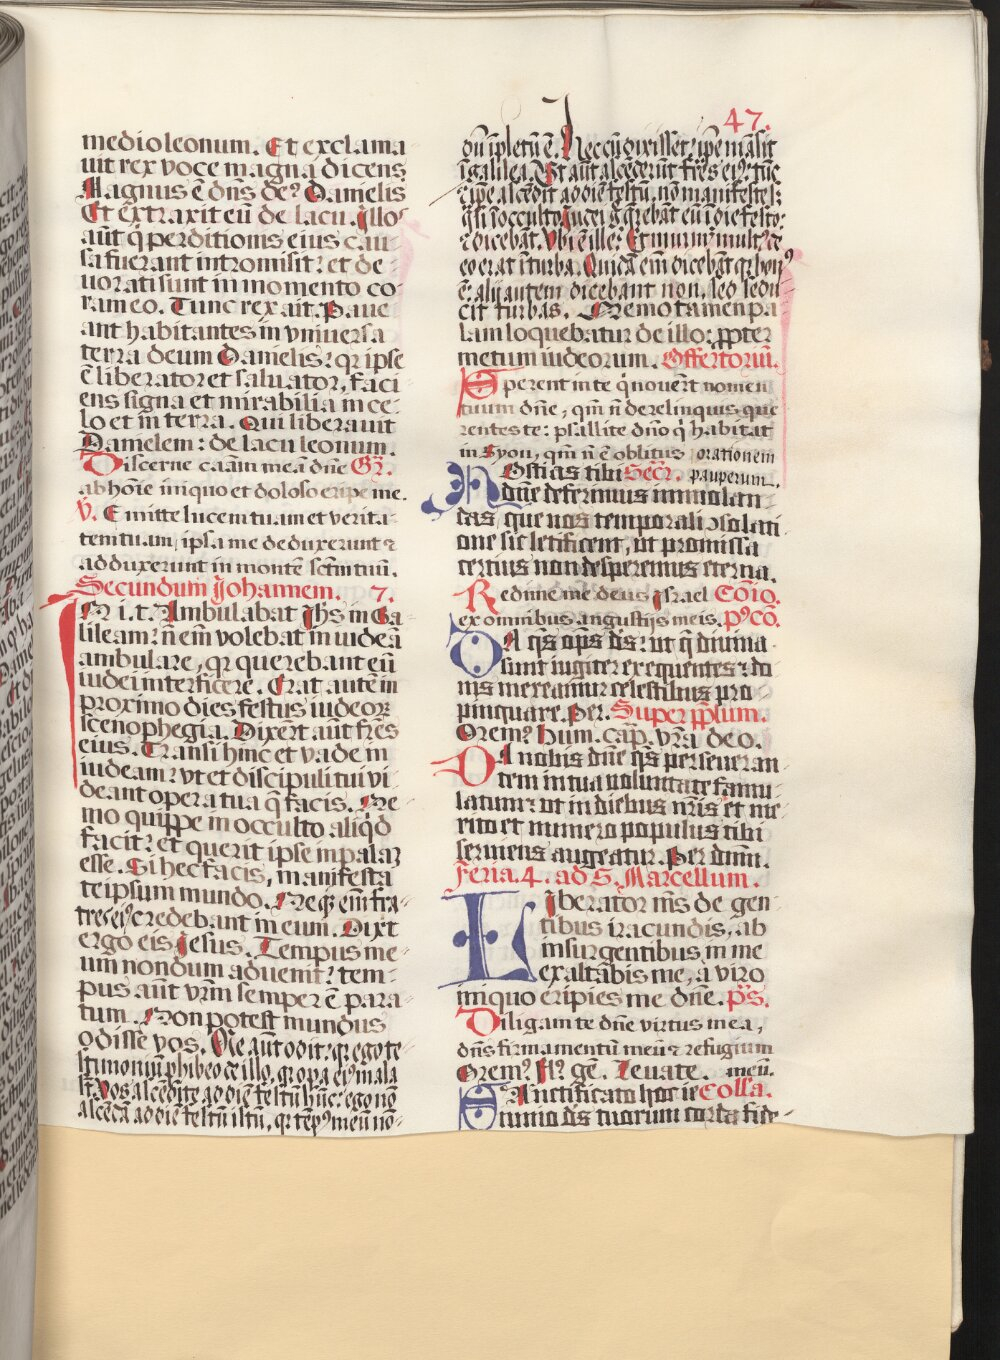 47.
medio leonum. Et exclama
uit rex voce magna dicens
Magnus ē dn̄s deꝰ Danielis
Et extraxit eū de lacu. Illos
aūt q̄ perditionis eius cau
sa fuerant intromisit: et de
uorati sunt in momento co
ram eo. Tunc rex ait. Paue
ant habitantes in vniuersa
terra deum Danielis: qꝛ ipse
ē liberator et saluator, faci
ens signa et mirabilia in ce
lo et in terra. Qui liberauit
Danielem: de lacu leonum.
Discerne caām meā dn̄e Gꝛ.
ab hoīe iniquo et doloso eripe me.
v. Emitte lucem tuam et verita
tem tuam, ipsa me deduxerunt ⁊
adduxerunt in montē sc̄m tuū.
Secundum Johannem. 7.
In i. t. Ambulabat Jhs in Ga
lileam: n̄ em̄ volebat in iudeā
ambulare, qꝛ querebant eū
iudei interficere. Erat autē in
proximo dies festus iudeoꝝ
scenophegia. Dixer̄t aūt fr̄es
eius. Transi hinc et vade in
iudeam: vt et discipuli tui vi
deant opera tua q̄ facis. Ne
mo quippe in occulto aliq̄d
facit: et querit ipse in palaꝫ
esse. Si hec facis, manifesta
teipsum mundo. Neqꝫ em̄ fra
tres eiꝰ credebant in eum. Dixt
ergo eis Jesus. Tempus me
um nondum aduenit: tem
pus aūt vr̄m semper ē para
tum. Non potest mundus
odisse vos. Me aūt odit: qꝛ ego te
stimoniū ꝑhibeo de illo, qꝛ opa eiꝰ mala
st̄. Vos ascēdite ad diē festū hūc: ego nō
ascēdā ad diē festū istū, qꝛ tēpꝰ meū nō
dū īpletū ē. Hec cū dixisset: ipē māsit
ī galilea. Vt aūt ascēderūt fr̄es eiꝰ: tūc
⁊ ipē ascēdit ad diē festū, nō manifeste:
q̄si ī occulto Judei q̄rebāt eū ī die festo:
⁊ dicebāt. Vbi ē ille: Et murmꝰ multꝰ d̄
eo erat ī turba. Quidā em̄ dicebāt qꝛ bonꝰ
ē. alij autem dicebant non, sed sedu
cit turbas. Nemo tamen pa
lam loquebatur de illo: ꝓpter
metum iudeorum. Offertoriū.
Sperent in te q̄ nouer̄t nomen
tuum dn̄e, qm̄ n̄ derelinquis que
rentes te: psallite dn̄o q̇ habitat
in Syon, qm̄ n̄ ē oblitus orationem
pauperum.
Hostias tibi Secꝛ.
dn̄e deferimus immolan
das, que nos temporali ꝯsolati
one sic letificent, ut promissa
certius non desperemus eterna.
Redime me deus Israel Cōio.
ex omnibus angustijs meis. pꝰcō.
Da q̄s op̄s ds̄: ut q̄ diuina
sunt iugiter exequentes: do
nis mereamur celestibus pro
pinquare. Per. Super pp̄lum.
Oremꝰ hum. cap. vr̄a deo.
Da nobis dn̄e q̄s perseueran
tem in tua voluntate famu
latum: ut in diebus nr̄is et me
rito et numero populus tibi
seruiens augeatur. Per dnm̄.
Feria. 4. ad S. Marcellum.
Liberator ms̄ de gen
tibus iracundis, ab
insurgentibus in me
exaltabis me, a viro
iniquo eripies me dn̄e. ps̄.
Diligam te dn̄e virtus mea,
dn̄s firmamentū meū ⁊ refugium
meū.
Oremꝰ fl. gē. Leuate.
Sanctificato hoc ie Collā.
iunio ds̄ tuorum corda fide